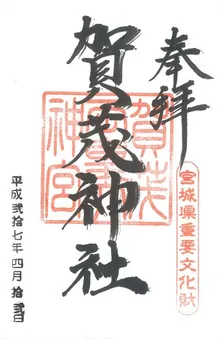 奉拝
宮城県重要文化財
賀茂神社
賀茂
神宮
平成弐拾七年四月拾弐日